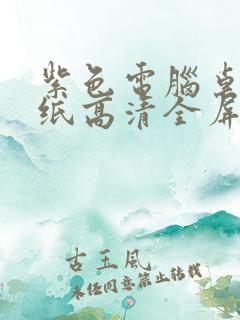 紫色電腦桌
纸高清全屏
古玉風
未经同意禁止转载